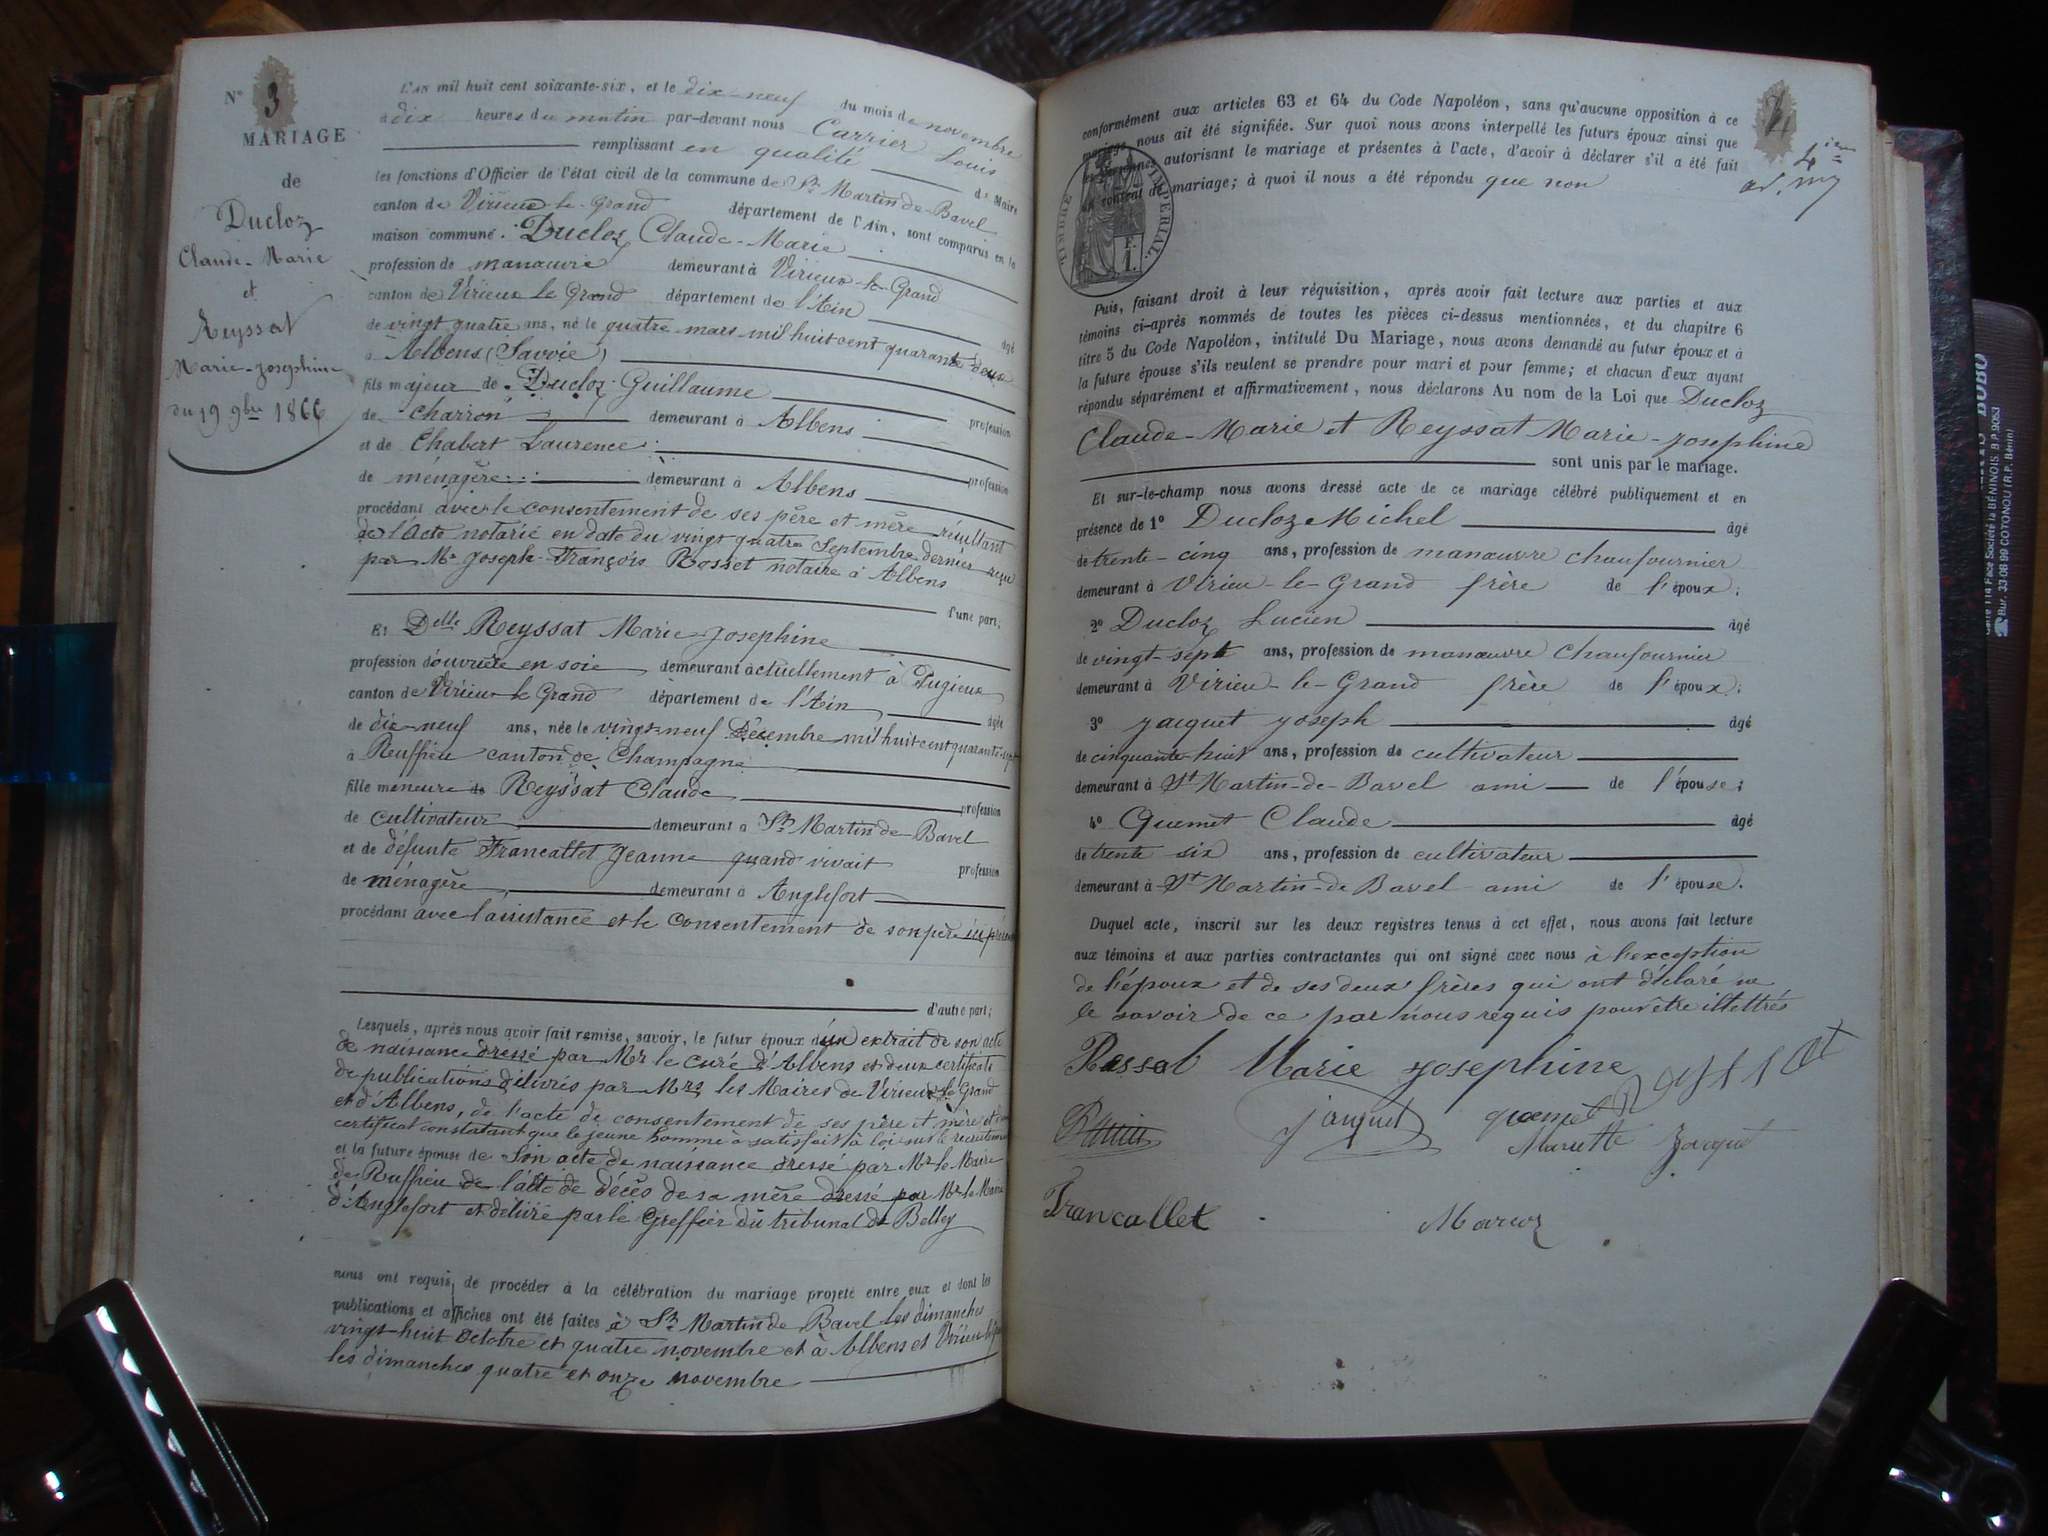 N° 3
MARIAGE
de
Ducloz
Claude-Marie
et
Reyssat
Marie-Josephine
du 19 9bre 1866
L'AN mil huit cent soixante-six, et le dix-neuf du mois de novembre
à dix heures du matin par-devant nous Carrier Louis
remplissant en qualité de Maire
les fonctions d'Officier de l'état civil de la commune de St Martin de-Bavel
canton de Virieu-le-Grand département de l'Ain, sont comparus en la
maison commune. Ducloz Claude-Marie
profession de manœuvre demeurant à Virieux-le-Grand
canton de Virieux le Grand département de l'Ain âgé
de vingt quatre ans, né le quatre mars mil huit cent quarante deux
à Albens (Savoie)
fils majeur de Ducloz Guillaume profession
de charron demeurant à Albens
et de Chabert Laurence profession
de ménagère demeurant à Albens
procédant avec le consentement de ses père et mère résultant
de l'Acte notarié en date du vingt quatre Septembre dernier reçu
par Me Joseph-François Rosset notaire à Albens
d'une part;
Et Delle Reyssat Marie Josephine
profession d'ouvrière en soie demeurant actuellement à Pugieux
canton de Virieux le Grand département de l'Ain âgée
de dix-neuf ans, née le vingt-neuf Décembre mil huit cent quarante-sept
à Ruffieu canton de Champagne
fille meneure de Reyssat Claude profession
de cultivateur demeurant à St Martin de-Bavel
et de défunte Francallet Jeanne quand vivait profession
de ménagère demeurant à Anglefort
procédant avec l'assistance et le consentement de son père ici présent
d'autre part;
Lesquels, après nous avoir fait remise, savoir, le futur époux d'un extrait de son acte
de naissance dressé par Mr le curé d'Albens et deux certificats
de publications délivrés par Mrs les Maires de Virieux-le Grand
et d'Albens, de l'acte de consentement de ses père et mère et d'un
certificat constatant que le jeune homme a satisfait à la loi sur le recrutement
et la future épouse de son acte de naissance dressé par Mr le Maire
de Ruffieu de l'acte de décès de sa mère dressé par Mr le Maire
d'Anglefort et délivré par le Greffier du tribunal de Belley
nous ont requis de procéder à la célébration du mariage projeté entre eux et dont les
publications et affiches ont été faites à St Martin de Bavel les dimanches
vingt-huit Octobre et quatre novembre et à Albens et Virieu le Grand
les dimanches quatre et onze novembre
4ième
conformément aux articles 63 et 64 du Code Napoléon, sans qu'aucune opposition à ce
mariage nous ait été signifiée. Sur quoi nous avons interpellé les futurs époux ainsi que
les personnes autorisant le mariage et présentes à l'acte, d'avoir à déclarer s'il a été fait
un contrat de mariage; à quoi il nous a été répondu que non
TIMBRE IMPÉRIAL
Puis, faisant droit à leur réquisition, après avoir fait lecture aux parties et aux
témoins ci-après nommés de toutes les pièces ci-dessus mentionnées, et du chapitre 6
titre 5 du Code Napoléon, intitulé Du Mariage, nous avons demandé au futur époux et à
la future épouse s'ils veulent se prendre pour mari et pour femme; et chacun d'eux ayant
répondu séparément et affirmativement, nous déclarons Au nom de la Loi que Ducloz
Claude-Marie et Reyssat Marie-Josephine
sont unis par le mariage.
Et sur-le-champ nous avons dressé acte de ce mariage célébré publiquement et en
présence de 1° Ducloz Michel âgé
de trente-cinq ans, profession de manœuvre chaufournier
demeurant à Virieu-le-Grand frère de l'époux;
2° Ducloz Lucien âgé
de vingt-sept ans, profession de manœuvre chaufournier
demeurant à Virieu-le-Grand frère de l'époux;
3° Jacquet Joseph âgé
de cinquante-huit ans, profession de cultivateur
demeurant à St Martin-de-Bavel ami de l'épouse;
4° Quemet Claude âgé
de trente six ans, profession de cultivateur
demeurant à St Martin-de Bavel ami de l'épouse.
Duquel acte, inscrit sur les deux registres tenus à cet effet, nous avons fait lecture
aux témoins et aux parties contractantes qui ont signé avec nous à l'exception
de l'époux et de ses deux frères qui ont déclaré ne
le savoir de ce par nous requis pour être illettrés
Ressat Marie Josephine
jacquet quemet
Mariette Jacquet
Francallet